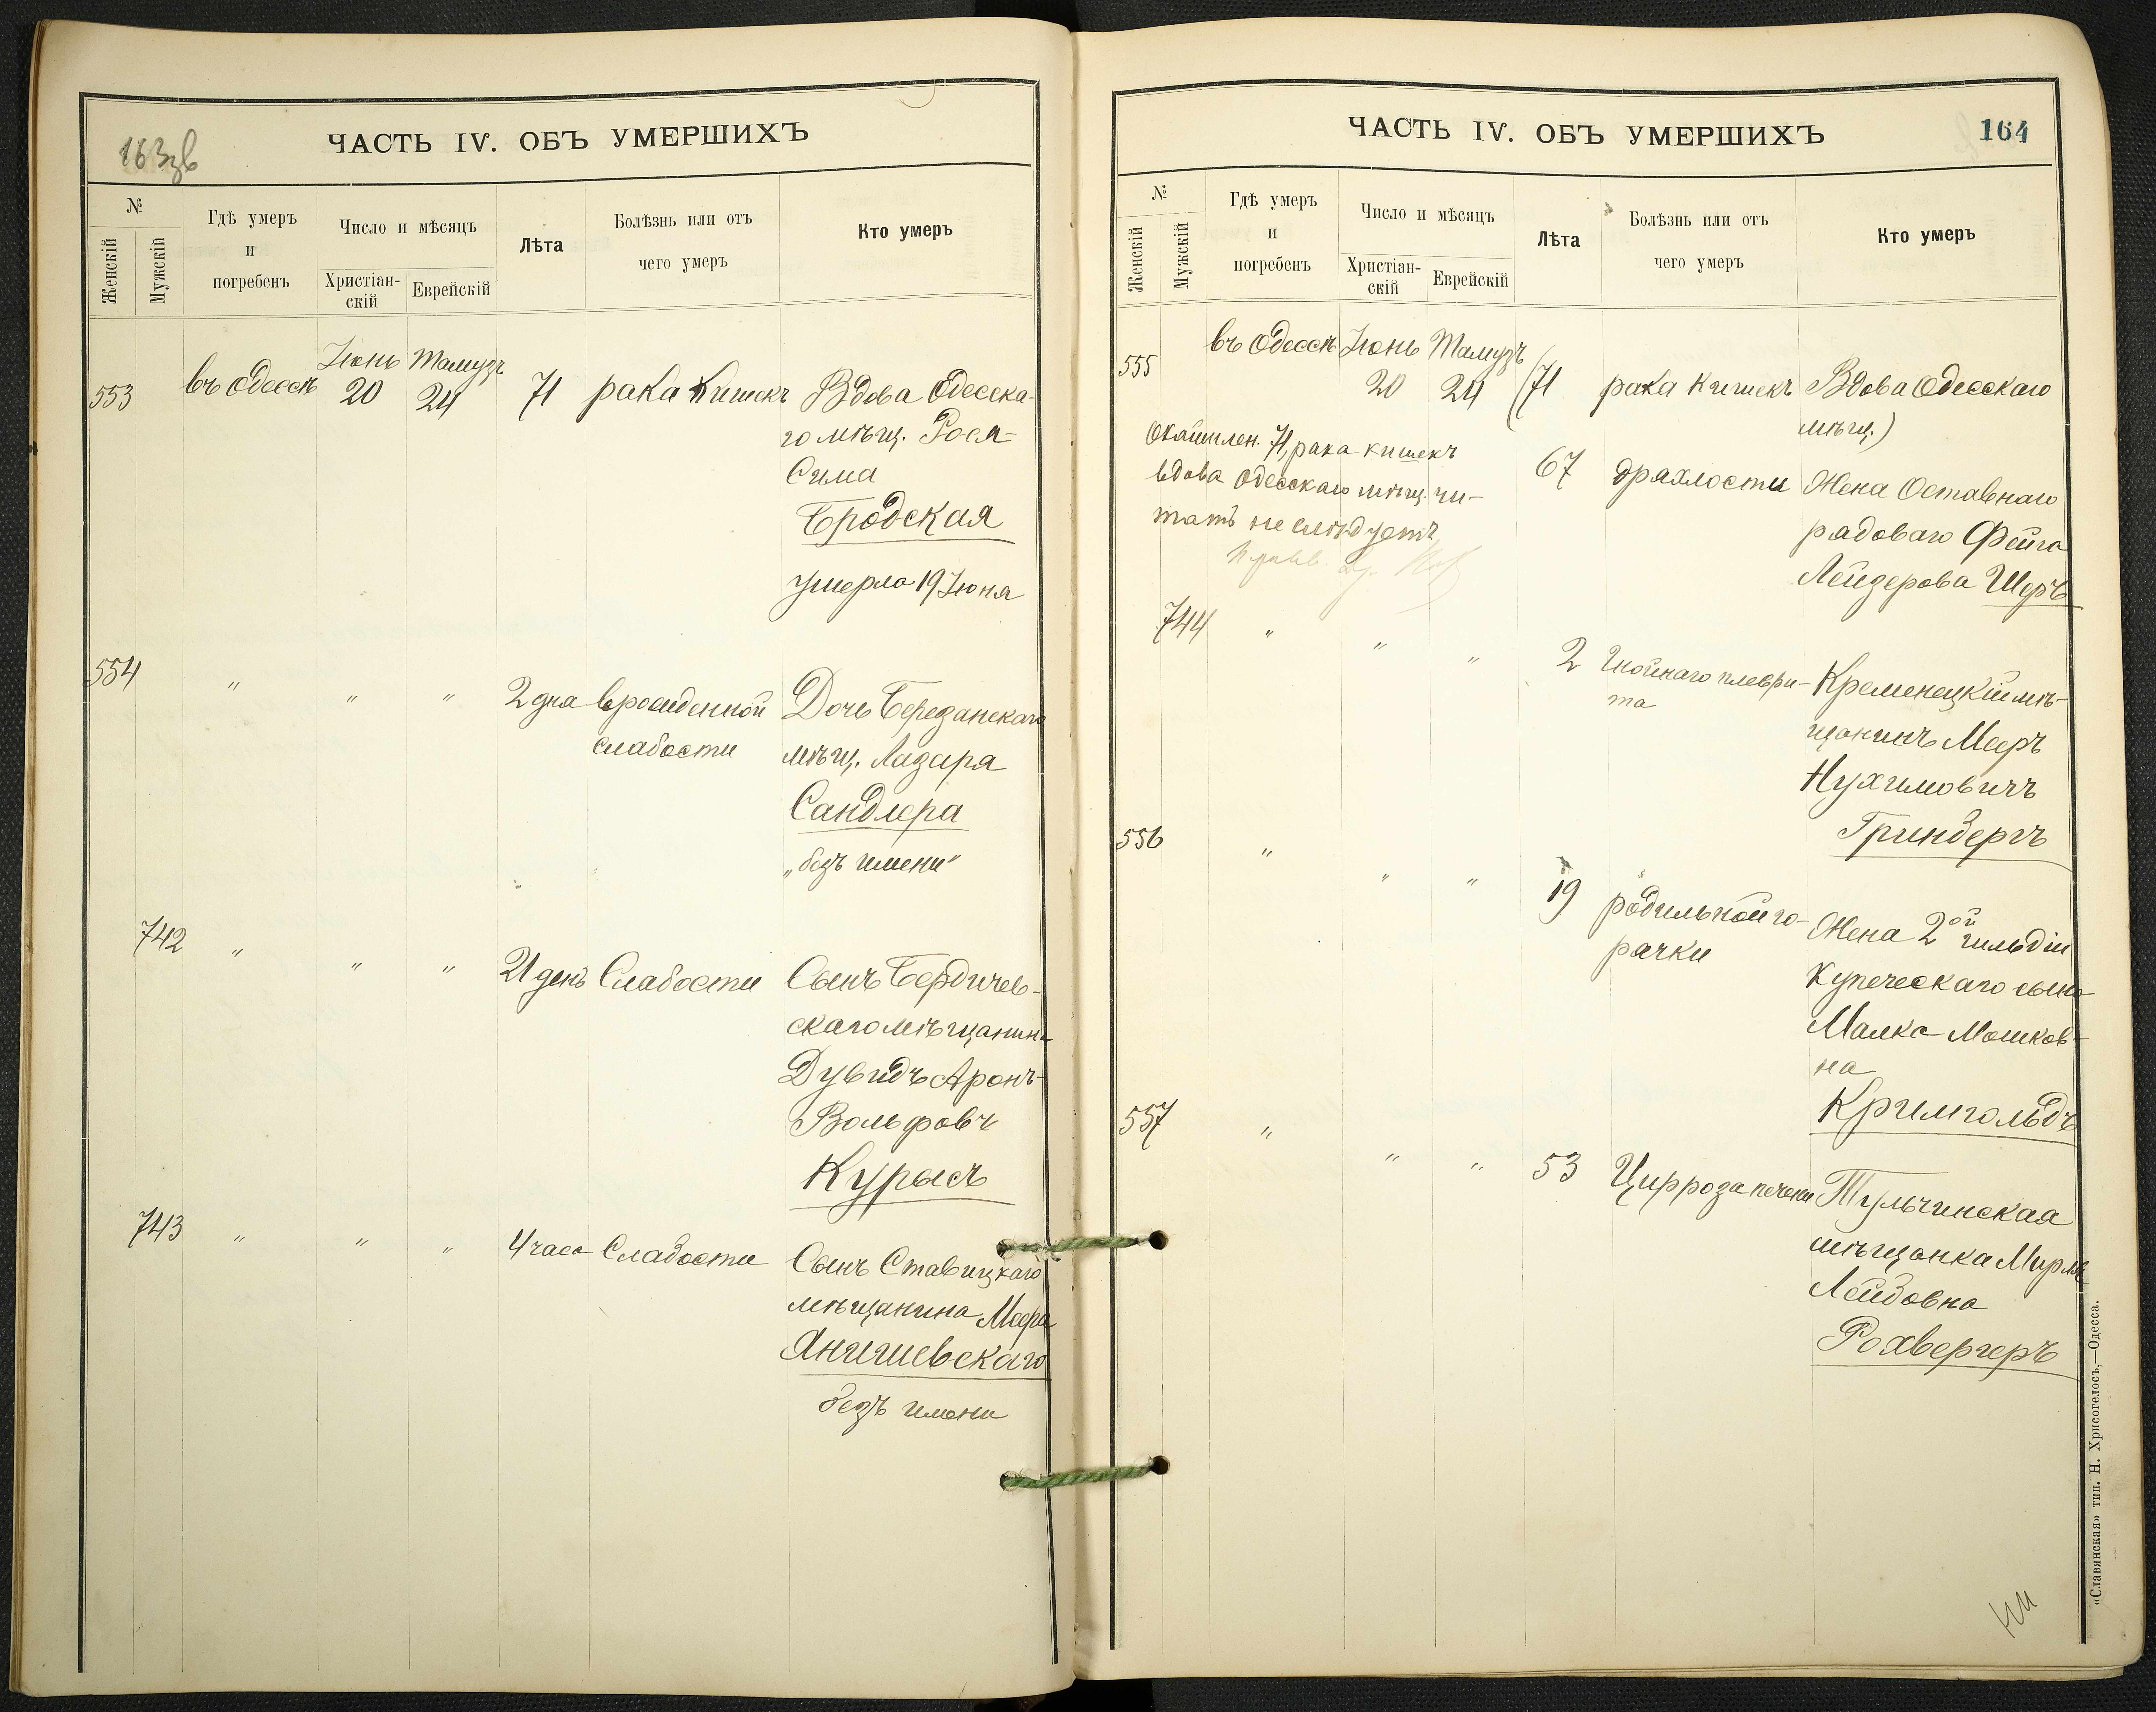 163зв
ЧАСТЬ IV. ОБЪ УМЕРШИХЪ
№
Женскій
Мужскій
Гдѣ умеръ
и
погребенъ
Число и мѣсяцъ
Христіан-
скій
Еврейскій
Лѣта
Болѣзнь или отъ
чего умеръ
Кто умеръ
Іюнь Тамузъ
553 въ Одессѣ 20 24 71 рака кишекъ Вдова Одесска-
го мѣщ. Рося-
Сима
Бродская
умерла 19 Іюня
554 " " " 2 дня врожденной Дочь Березанскаго
слабости мѣщ. Лазаря
Сандлера
„безъ имени"
742 " " " 21 день Слабости Сынъ Бердичев-
скаго мѣщанина
Дувидъ Аронъ-
Вольфовъ
Курысъ
743 " " " 4 часа Слабости Сынъ Ставицкаго
мѣщанина Меера
Янишевскаго
безъ имени
ЧАСТЬ IV. ОБЪ УМЕРШИХЪ
164
№
Женскій
Мужскій
Гдѣ умеръ
и
погребенъ
Число и мѣсяцъ
Христіан-
скій
Еврейскій
Лѣта
Болѣзнь или отъ
чего умеръ
Кто умеръ
555 въ Одессѣ Іюнь Тамузъ
20 24 (71 рака кишекъ Вдова Одесскаго
мѣщ.)
Окаймлен. 71, рака кишекъ
вдова Одесскаго мѣщ. чи-
тать не слѣдуетъ
67 дряхлости Жена Отставнаго
рядоваго Фейга
Лейзерова Шеръ
744 " " " 2 Гнойнаго плеври-
та
Кременецкій мѣ-
щанинъ Мееръ
Нухимовичъ
Гринбергъ
556 " " " 19 родильной го-
рячки
Жена 2ой гильдіи
Купеческаго сына
Малка Мошков-
на
Кримгольдъ
557 " " " 53 Цирроза печени Тульчинская
мѣщанка Мирля
Лейбовна
Рохвергеръ
«Славянская» тип. Н. Хрисогелосъ,—Одесса.